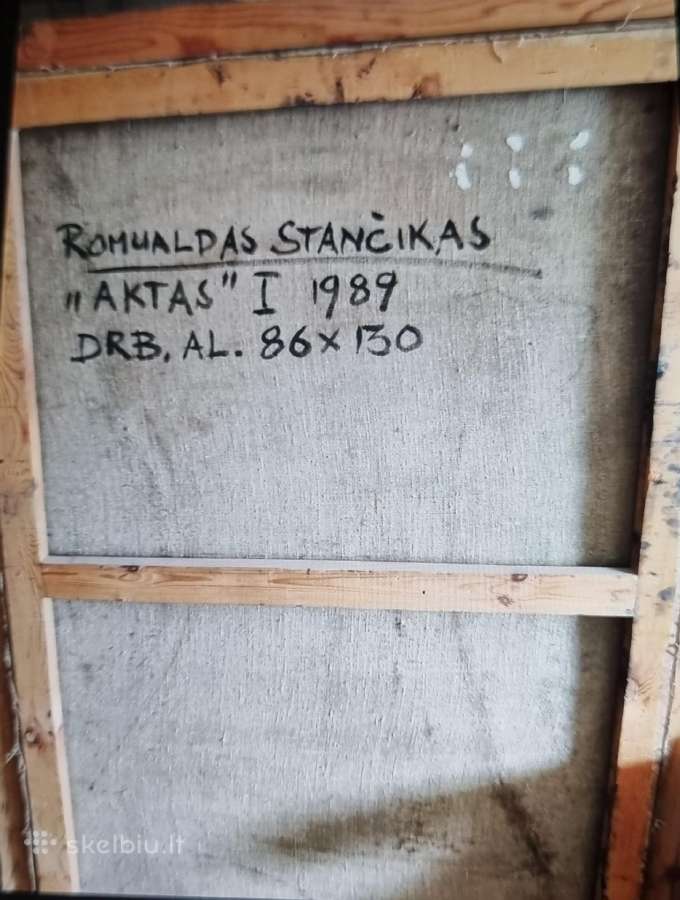 ROMUALDAS STANČIKAS
„AKTAS" I 1989
DRB, AL. 86 x 130
skelbiu.lt